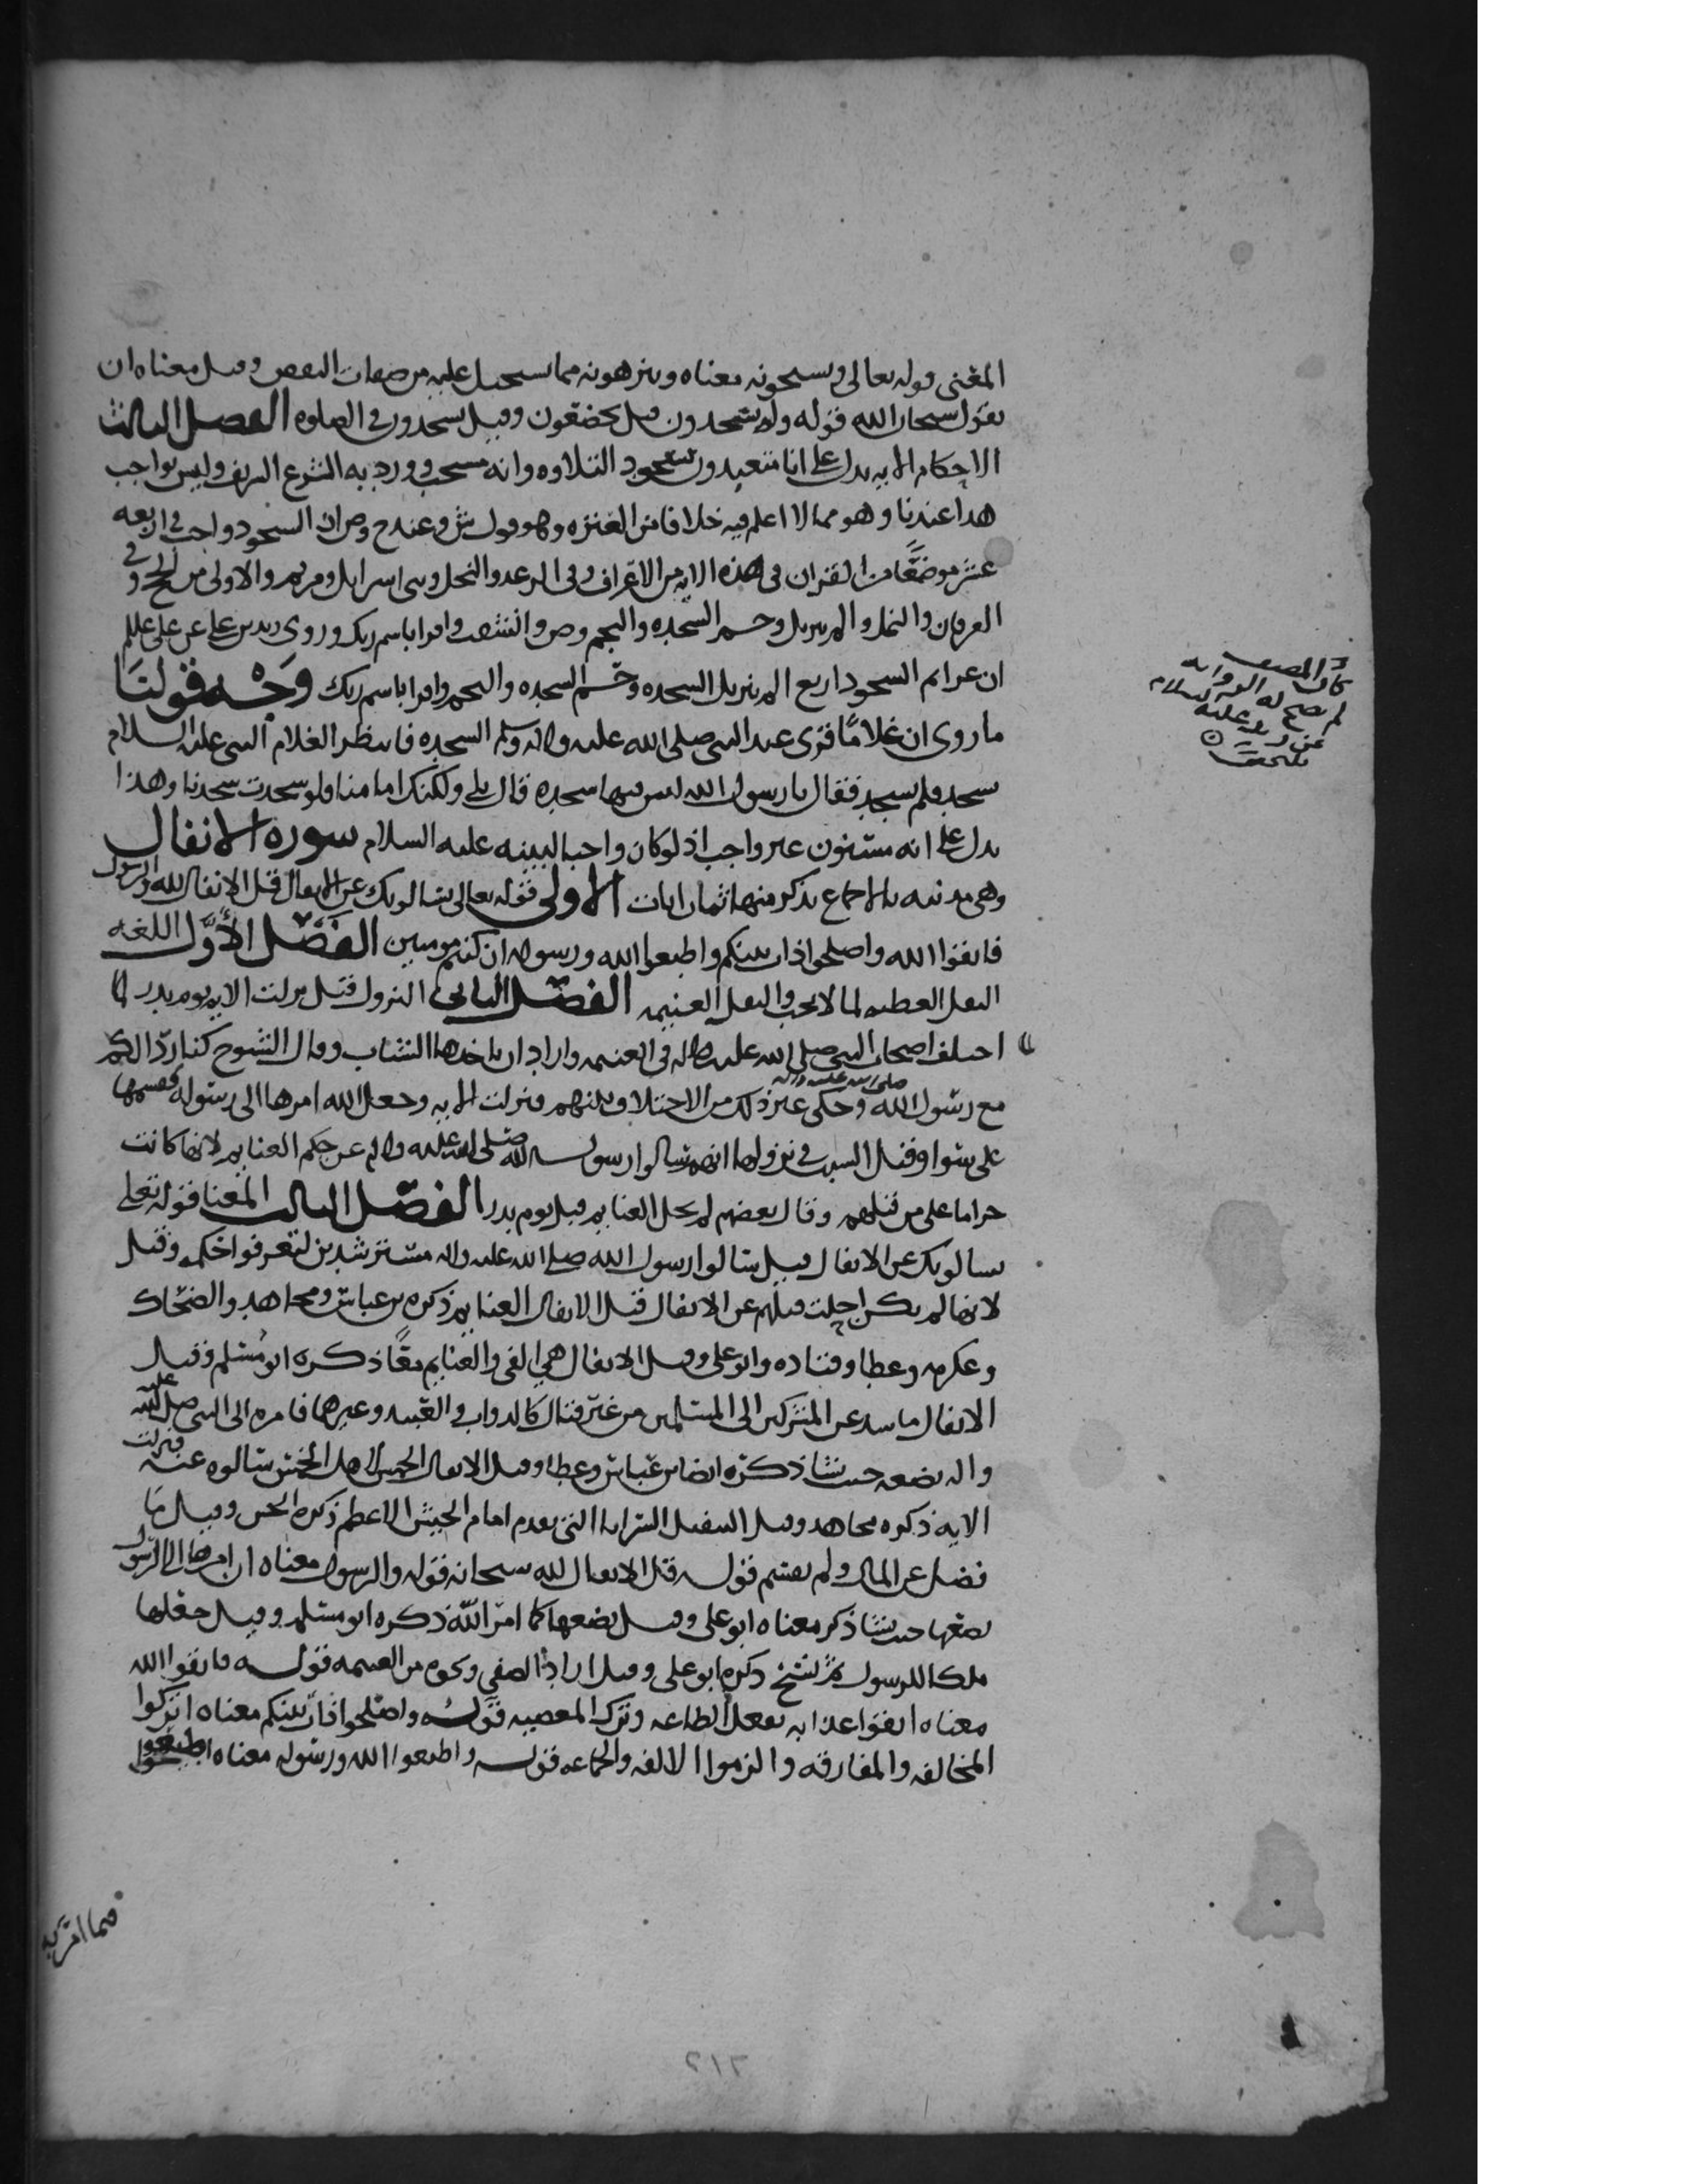 المعنى قوله تعالى ويسبحونه معناه وينزهونه مما يستحيل عليه من صفات النقص وقيل معناه ان
يقول سبحان الله قوله وله يسجدون قيل يخضعون وقيل يسجدون في الصلوه الفصل الثالث
الاحكام الايه يدل على انا متعبدون بسجود التلاوه وانه مستحب وورد به الشرع الشريف وليس بواجب
هذا عندنا وهو مما لا اعلم فيه خلافا من العتره وهو قول ش وعند ح وص ان السجود واجب في اربعه
عشر موضعًا من القران في هذه الايه من الاعراف وفي الرعد والنحل وبني اسرايل ومريم والاولى من الحج وفي
الفرقان والنمل والم تنزيل وحم السجده والنجم وص وانشقت واقرا باسم ربك وروى زيد بن علي عن علي عللم
ان عزايم السجود اربع الم تنزيل السجده وحم السجده والنجم واقرا باسم ربك وَجْه قولنَا
ما روى ان غلامًا قرى عند النبي صلى الله عليه واله وسلم السجده فانتظر الغلام النبي عليه السلام
يسجد فلم يسجد فقال يا رسول الله ليس فيها سجده قال بلى ولكنك امامنا فلو سجدت سجدنا وهذا
يدل على انه مسنون غير واجب اذ لو كان واجبا لبينه عليه السلام سوره الانفال
وهي مدنيه بالاجماع يذكر منها ثمان ايات الاولى قوله تعالى يسالونك عن الانفال قل الانفال لله والرسول
فاتقوا الله واصلحوا ذات بينكم واطيعوا الله ورسوله ان كنتم مومنين الفصل الأوَّل اللغه
النفل العطيه لما لا يجب والنفل الغنيمه الفصل الثاني النزول قيل نزلت الايه يوم بدر لما
اختلف اصحاب النبي صلى الله عليه واله في الغنيمه واراد ان ياخذها الشباب وقال الشيوخ كنا ردًا لكم
مع رسول الله صلى الله عليه واله وحكى غير ذلك من الاختلاف بينهم فنزلت الايه وجعل الله امرها الى رسوله فقسمها
على سوا وقيل السبب في نزولها انهم سالوا رسول الله صلى الله عليه واله عن حكم الغنايم لانها كانت
حراما على من قبلهم وقال بعضهم لم يحل الغنايم قبل يوم بدر الفصل الثالث المعنا قوله تعلى
يسالونك عن الانفال قيل سالوا رسول الله صلى الله عليه واله مسترشدين لتعرفوا حكمه وقيل
لانها لم يكن احلت قبلهم عن الانفال قيل الانفال الغنايم ذكره بن عباس ومجاهد والضحاك
وعكرمه وعطا وقتاده وابو علي وقيل الانفال هي الفي والغنايم معًا ذكره ابو مُسلم وقيل
الانفال ما شد عن المشركين الى المسلمين من غير قتال كالدواب والعبيد وغيرها فامره الى النبي صلى الله عليه
واله يضعه حيث يشا ذكره ايضا بن عباس وعطا وقيل الانفال الخمس لاهل الخمس سالوه عنه فنزلت
الايه ذكره مجاهد وقيل النفيل السرايا التي تقدم امام الجيش الاعظم ذكره الحسن وقيل مَا
فضل عن المال ولم يقسم قوله قل الانفال لله سبحانه قوله والرسول معناه ان امرها الى الرسول
يضعها حيث يشا ذكر معناه ابو علي وقيل يضعها كما امر الله ذكره ابو مسلم وقيل جعلها
ملكا للرسول ثم نسخ ذكره ابو علي وقيل اراد الصفي ونحوه من الغنيمه قوله فاتقوا الله
معناه اتقوا عذابه بفعل الطاعه وترك المعصيه قوله واصلحوا ذات بينكم معناه اتركوا
المخالفه والمفارقه والزموا الالفه والجماعه قوله واطيعوا الله ورسوله معناه اطيعوا
فيما امر به
كان المصنف
لم تصح له الروايه
عن زيد عليه السلام